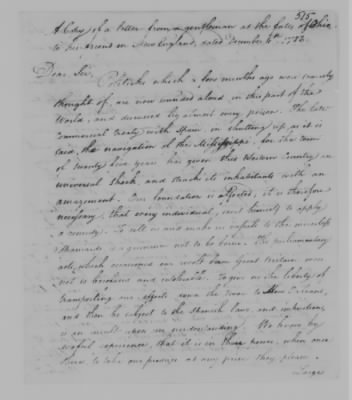 515
A Copy of a letter from a gentleman at the falls of Ohio
to his friend in New England, dated December 4th 1786.
Dear Sir,
Politicks which a few months ago were scarcely
thought of, are now sounded aloud, in this part of the
World, and discussed by almost every person. The late
commercial treaty with Spain, in shutting up, as it is
said, the navigation of the Mississippi, for the term
of twenty five years has given this Western Country an
universal shock and struck its inhabitants with an
amazement. Our foundation is affected; it is therefore
necessary that every individual, exert himself to apply
a remedy. To sell us and make us vassals to the merciless
Spaniards is a grievance not to be borne. The parliamentary
acts, which occasioned our revolt from Great Britain were
not so barefaced and intolerable. To give us the liberty of
transporting our effects down the river to New Orleans,
and then be subject to the Spanish laws and impositions,
is an insult upon our understanding. We know by
woful experience, that it is in their power, when once
there, to take our produce at any price they please.
Large